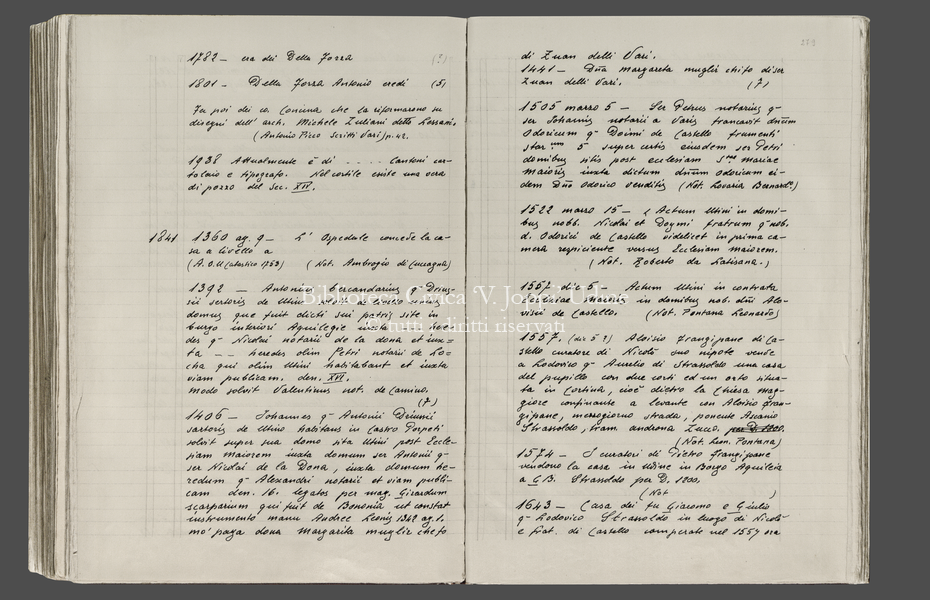 1782 — era dei Della Forza (5)
1801 — Della Forza Antonio eredi (5)
Fu poi dei co. Concina che la riformarono su
disegni dell' arch. Michele Zuliani detto Lessani.
(Antonio Picco Scritti Vari) p. 42.
1938 Attualmente è di . . . . Cantoni car-
tolaio e tipografo. Nel cortile esiste una vera
di pozzo del Sec. XVI.
1841 1360 ag. 9 — L' Ospedale concede la ca-
sa a livello a
(A.O.U. catastico 1753) (Not. Ambrogio di Cucagna)
1392 — Antonius
sii sertoris de Utino
domus que fuit dicti sui patris site in
burgo interiori Aquilegie iuxta here
des q. Nicolai notarii de la dona et iux=
ta — — heredes olim Petri notarii de Lo=
cha qui olim Utini habitabant et iuxta
viam publicam. den. XVI.
modo solvit Valentinus not. de Camino.
(7)
1406 — Johannes q. Antonii Driussii
sartoris de Utino habitans in Castro Porpeti
solvit super sua domo sita Utini post Eccle-
siam maiorem iuxta domum ser Antonii q.
ser Nicolai de la Dona, iuxta domum he-
redum q. Alexandri notarii et viam publi-
cam den. 16. legatos per mag. Girardum
scarparium qui fuit de Bononia ut constat
instrumento manu Andree Leonis 1348 ag. 1.
mo' paga dona Margarita muglir chefo
259
di Zuan delli Vari.
1441 — Dña Margareta muglir chifo di ser
Zuan delli Vari. (7)
1505 marzo 5 — Ser Petrus notarius q.
ser Johannis notarii a Varis francavit dnum
Odoricum q. Doimi de Castello frumenti
star. 5 super certis eiusdem ser Petri
domibus sitis post ecclesiam S.tae Mariae
Maioris iuxta dictum dnum Odoricum ei-
dem Dño Odorico venditis (Not. Lovaria Bernard.o)
1522 marzo 15 — Actum Utini in domi-
bus nobb. Nicolai et Doymi fratrum q. nob.
d. Odorici de Castello videlicet in prima ca-
mera respiciente versus Ecclesiam maiorem.
(Not. Roberto da Latisana.)
1557 Actum Utini in contrata
in domibus nob. dni Alo-
visii de Castello. (Not. Pontana Leonardo)
1557. (dic 5?) Aloisio Frangipane di Ca-
stello curatore di Nicolò suo nipote vende
a Lodovico q. Aurelio di Strassoldo una casa
del pupillo con due corti ed un orto situa-
ta in Cortina, cioè dietro la Chiesa Mag-
giore confinante a levante con Aloisio Fran-
gipane, mezzogiorno strada, ponente Ascanio
Strassoldo, tram. androna Zucco. per D. 1200.
(Not. Leon. Pontana)
1574 — I curatori di Pietro Frangipane
vendono la casa in Udine in Borgo Aquileia
a G.B. Strassoldo per D. 1200.
(Not )
1643 — Casa dei fu Giacomo e Giulio
q. Lodovico Strassoldo in luogo di Nicolò
e frat. di Castello comperata nel 1557 era
Biblioteca Civica 'V. Joppi' Udine
© tutti i diritti riservati